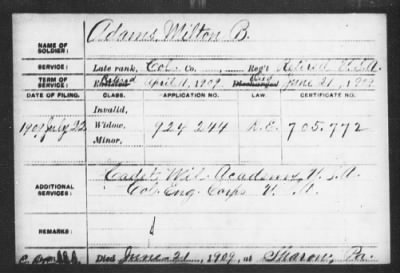 Adams, Milton B.
NAME OF SOLDIER:
SERVICE: Late rank, Col. Co. , Reg't Retired U.S.A.
TERM OF SERVICE: Enlisted Retired April 1, 1909. Discharged Died June 21, 1909
DATE OF FILING. CLASS. APPLICATION NO. LAW CERTIFICATE NO.
Invalid,
1909 July 22 Widow, 924 244 705.772
Minor.
ADDITIONAL SERVICES: Cadet Mil. Academy, U.S.A.
Col. Eng. Corps U. A.
REMARKS:
Died June 21, 1909, at Sharon, Pa.